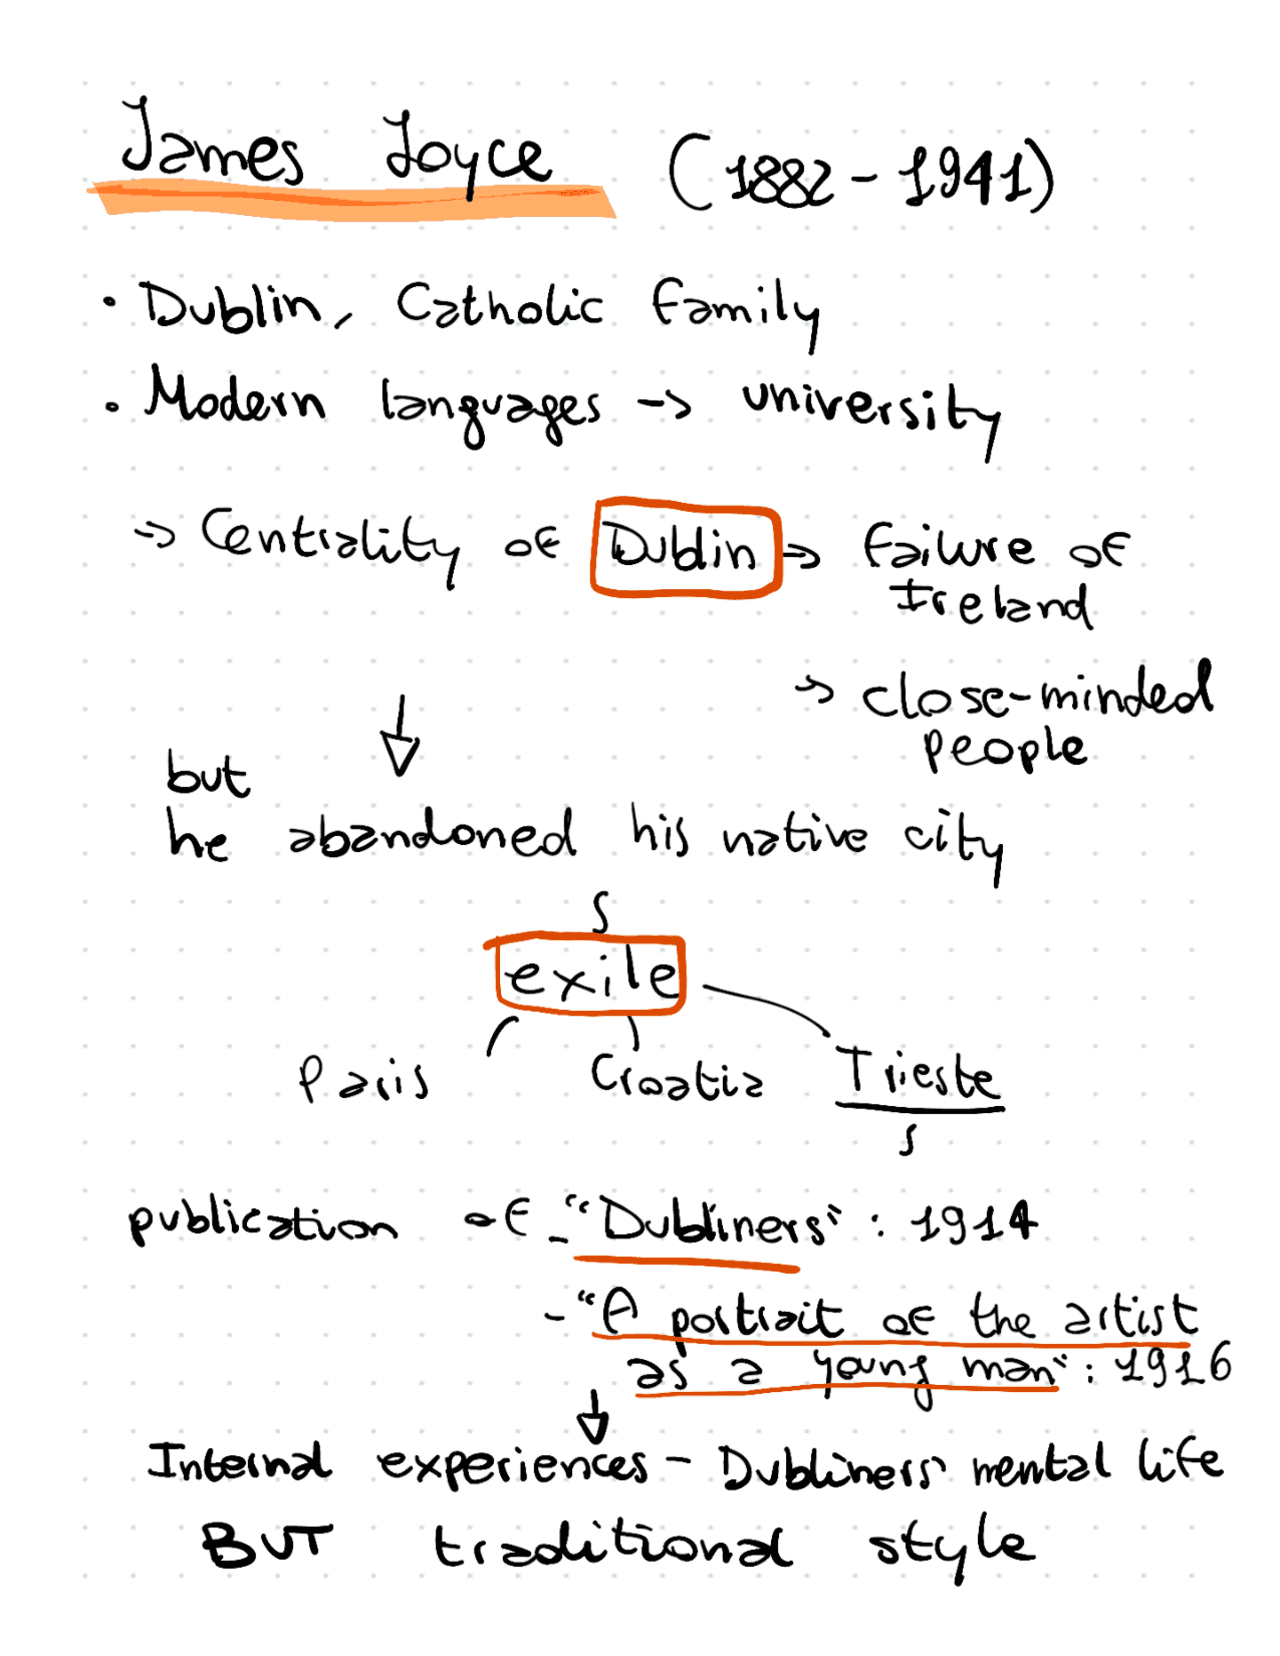 James Joyce (1882 - 1941)
• Dublin, Catholic family
• Modern languages -> university
-> Centrality of Dublin -> failure of
Ireland
-> close-minded
people
but
he abandoned his native city
exile
Paris Croatia Trieste
publication of - "Dubliners" : 1914
- "A portrait of the artist
as a young man" : 1916
Internal experiences - Dubliners' mental life
BUT traditional style